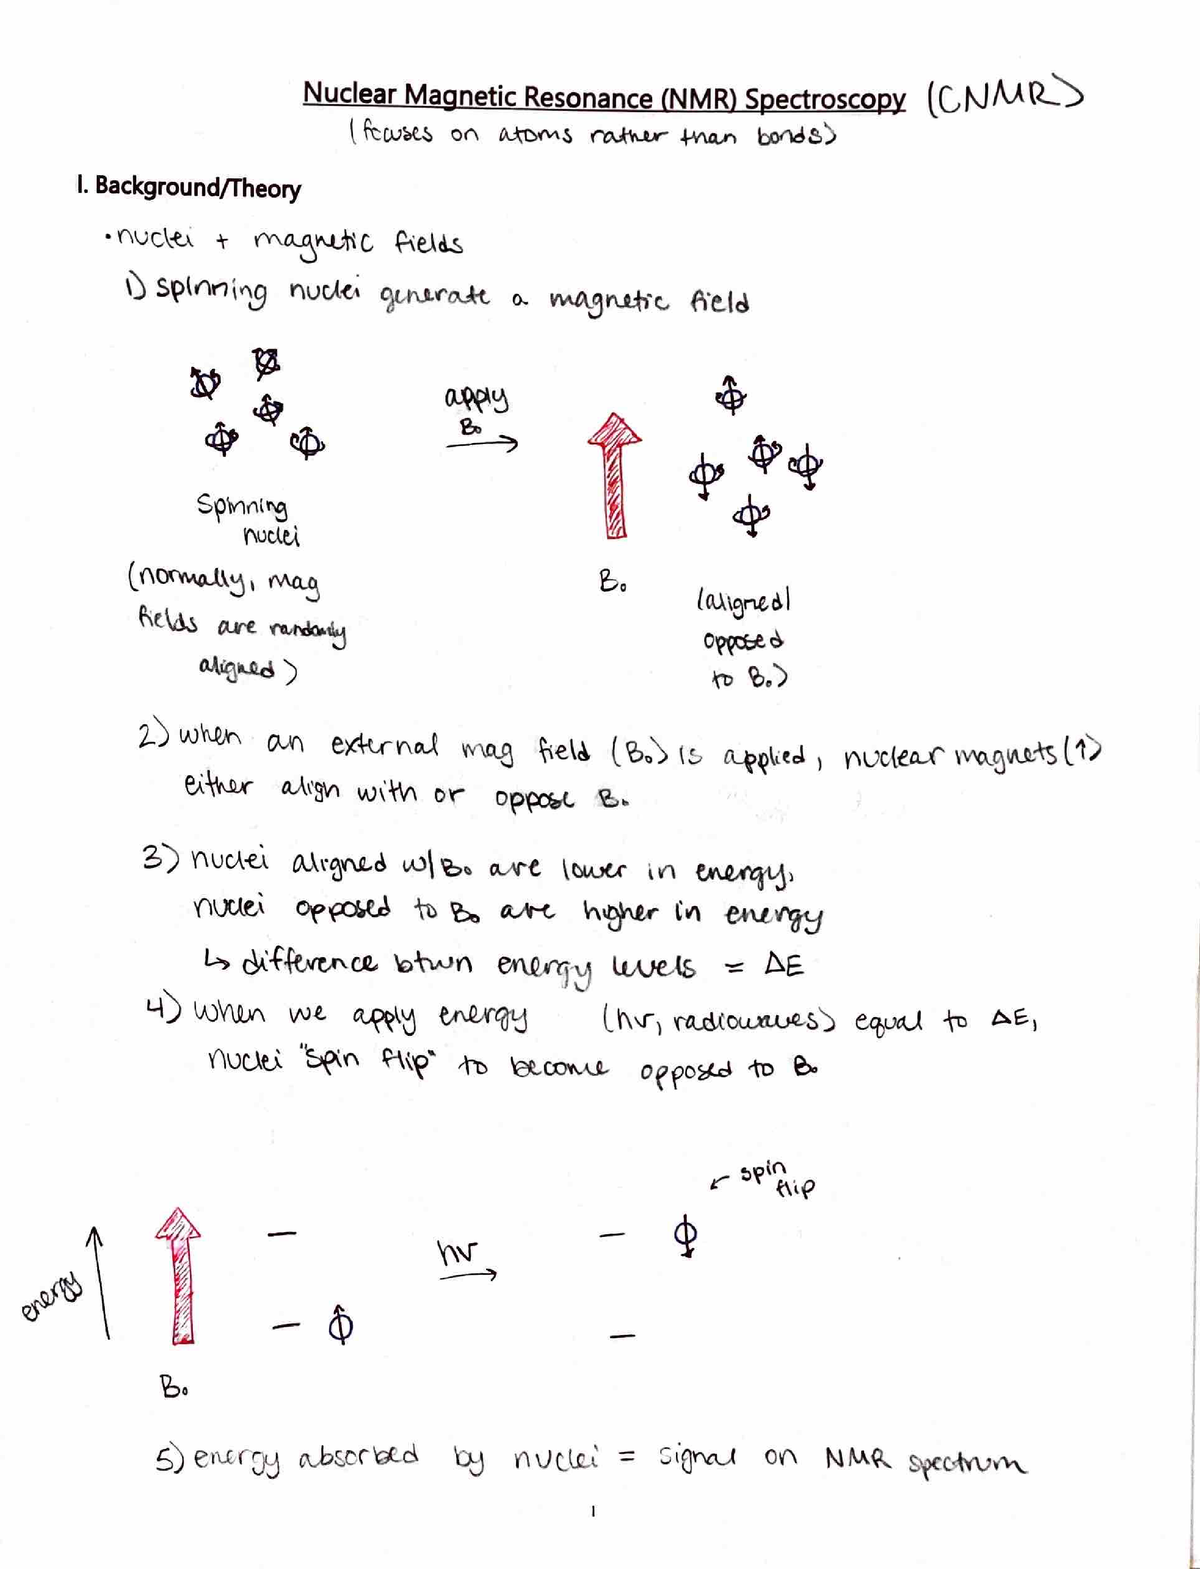 Nuclear Magnetic Resonance (NMR) Spectroscopy (CNMR)
(focuses on atoms rather than bonds)
I. Background/Theory
• nuclei + magnetic fields
1) spinning nuclei generate a magnetic field
apply
B₀
Spinning
nuclei
(normally, mag
fields are randomly
aligned)
B₀
(aligned/
opposed
to B₀)
2) when an external mag field (B₀) is applied, nuclear magnets (↑)
either align with or oppose B₀
3) nuclei aligned w/ B₀ are lower in energy,
nuclei opposed to B₀ are higher in energy
↳ difference btwn energy levels = ΔE
4) when we apply energy (hν, radiowaves) equal to ΔE,
nuclei "spin flip" to become opposed to B₀
spin
flip
hν
energy
B₀
5) energy absorbed by nuclei = signal on NMR spectrum
1